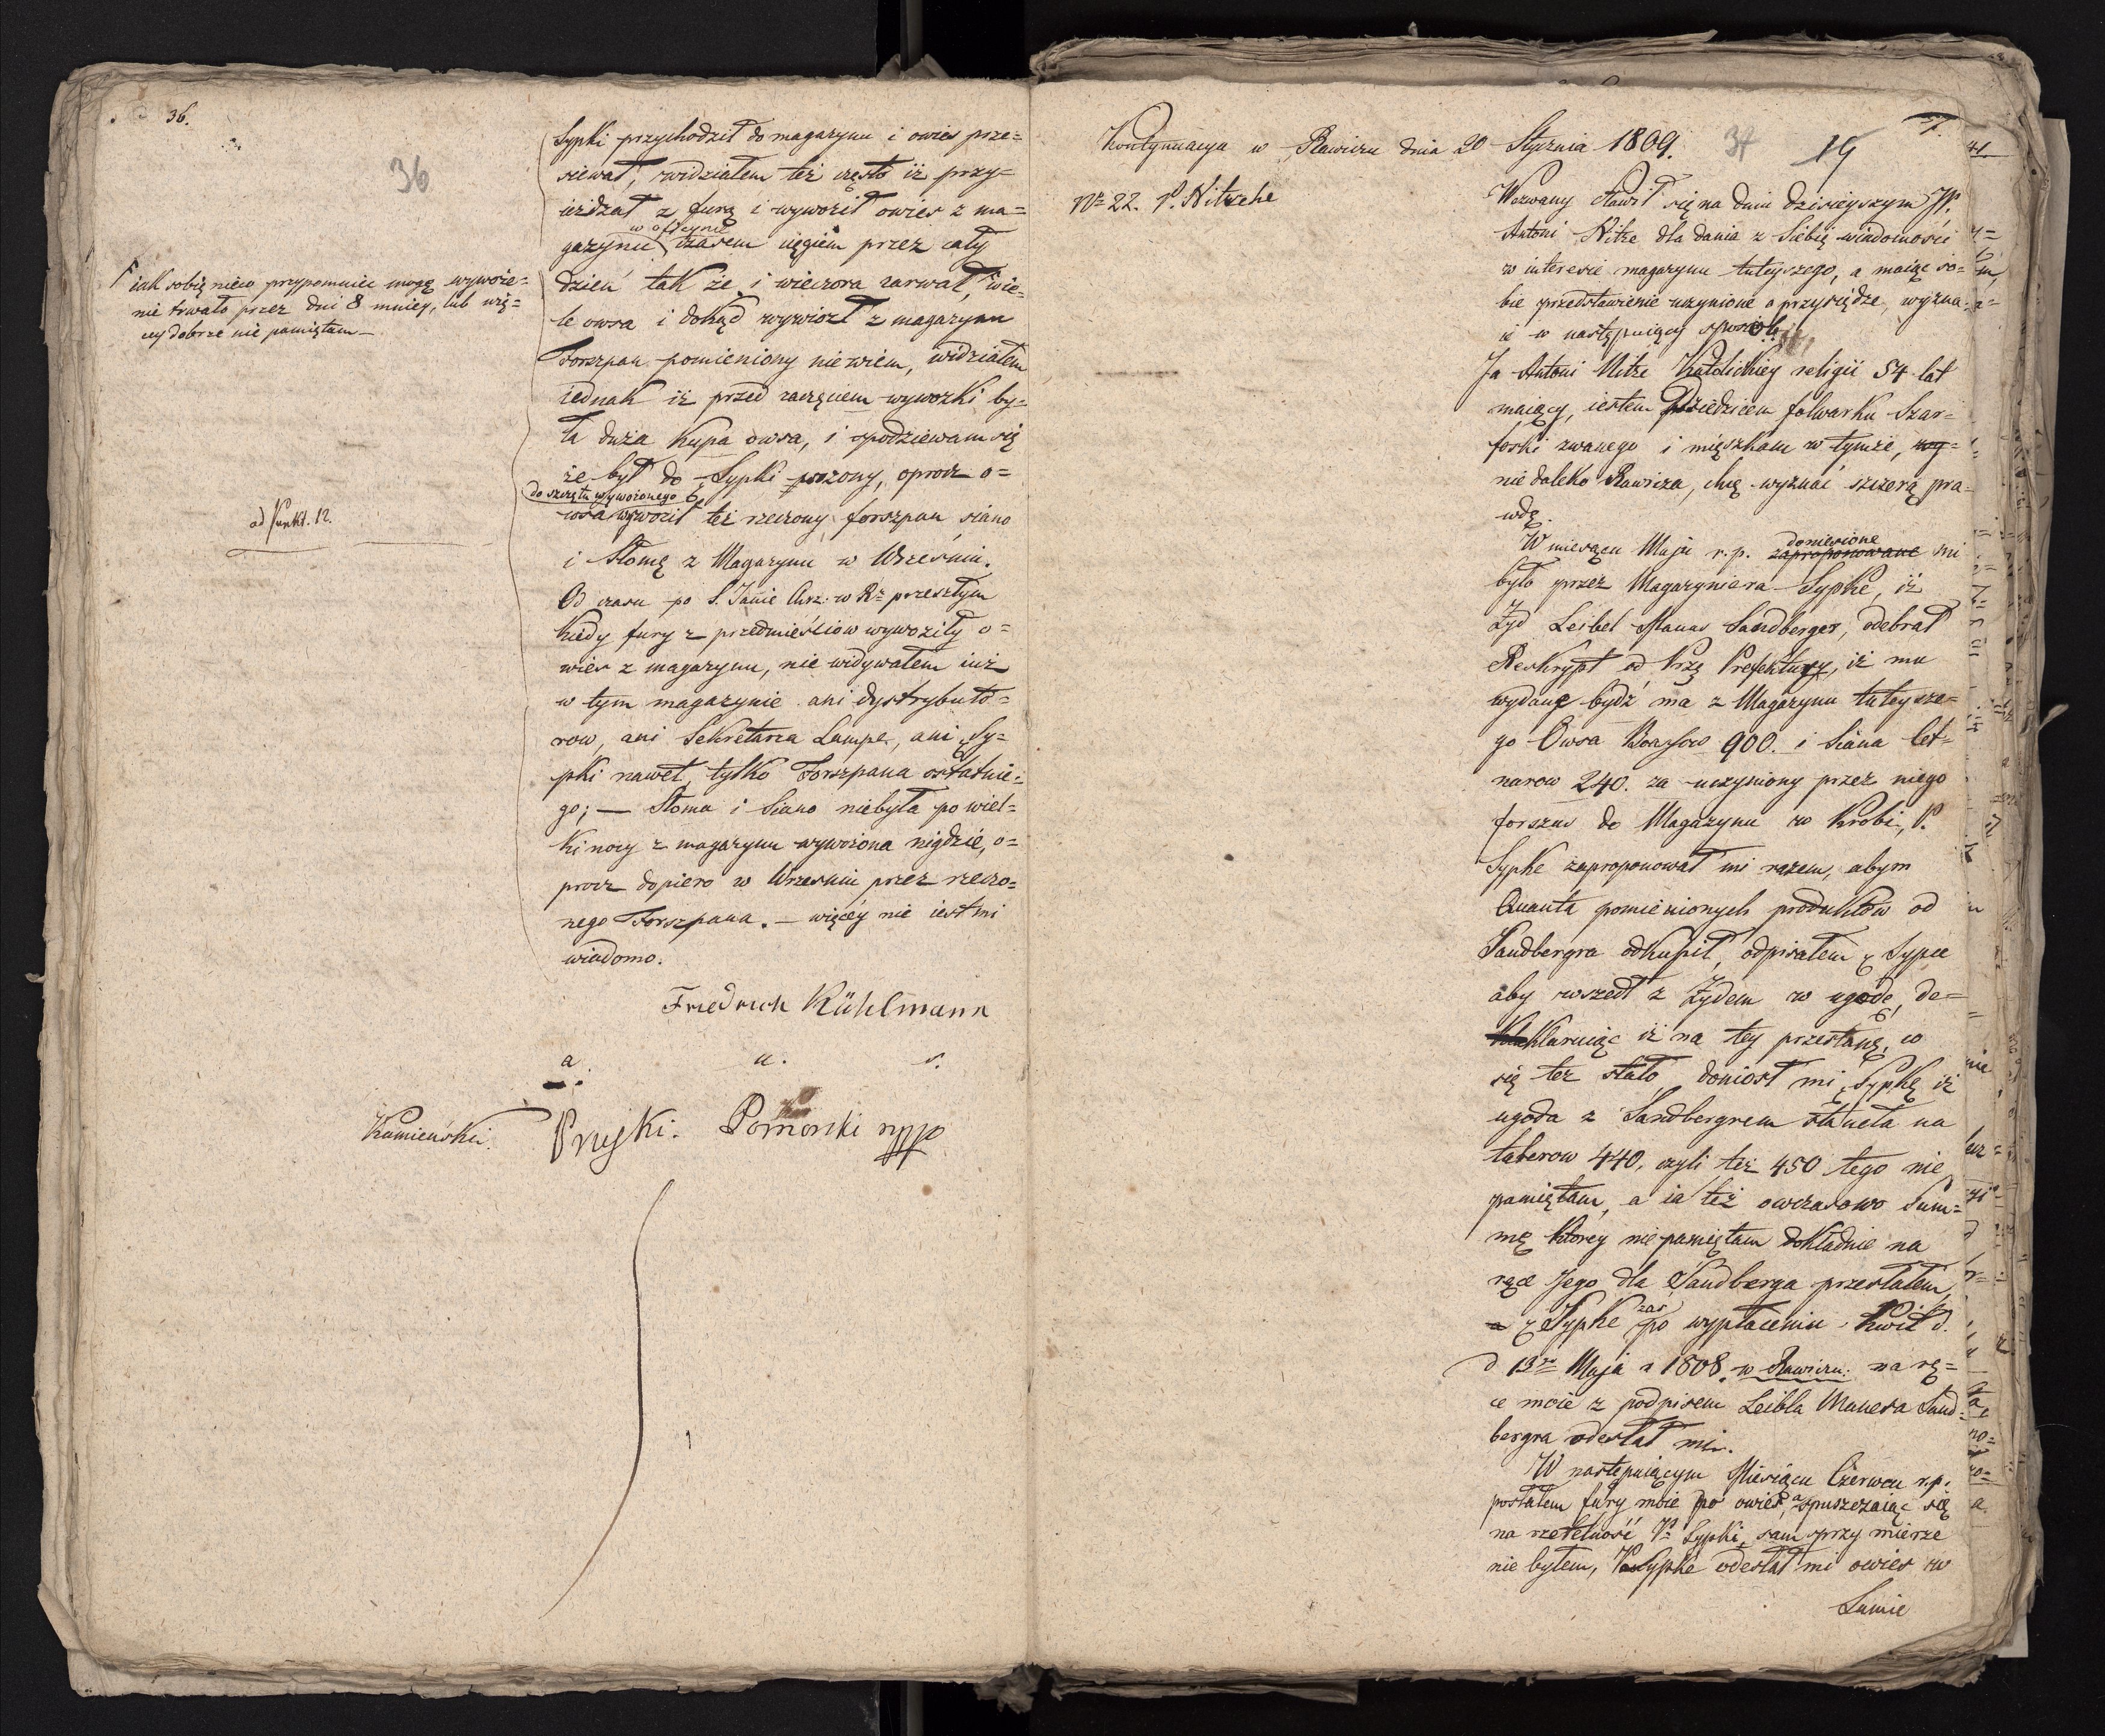 36.
36
Sypki przychodził do magazynu i owies prze=
siewał, widziałem też często iż przy=
ieżdzał z furą i wywoził owies z ma=
w oficynie
gazynu czasem ciągiem przez cały
dzień tak że i wieczora zarwał, wie=
le owsa i dokąd wywiozł z magazynu
Forszpan pomieniony nie wiem, widziałem
iednak iż przed zaczęciem wywozki by=
ła duża kupa owsa, i spodziewam się
że był do Sypki wozony, oprocz o=
do szczętu wywożonego
wsa wywoził też rzeczony forszpan siano
i Słomę z Magazynu w Wrześniu.
Od czasu po S. Janie Chrz: w Rº przeszłym
kiedy fury z przedmieściow wywoziły o=
wies z magazynu, nie widywałem iuż
w tym magazynie ani dystrybuto=
row, ani Sekretarza Lampe, ani Sy=
pki nawet, tylko Forszpana ostatnie=
go; — Słoma i Siano niebyła po wiel=
ki nocy z magazynu wywożona nigdzie, o=
procz dopiero w Wrześniu przez rzeczo=
nego Forszpana. — więcéy nie iest mi
wiadomo.
iak sobię nieco przypomnieć mogę wywoże=
nie trwało przez dni 8 mniey, lub wię=
cey dobrze nie pamiętam —
ad Punkt. 12.
Friedrich Kühlmann
a. u. s.
Kamieński. Pruski. Pomorski mpp
Kontynuacya w Rawiczu dnia 20 Stycznia 1809.
37
19
Nº 22. P. Nitsche
Wezwany stawił się na dniu dzisieyszym JP.
Antoni Nitze dla dania z Siebię wiadomości
w interesie magazynu tuteyszego, a maiąc so=
bie przedstawienie uczynione o przysiędze, wyzna=
ie w następuiący sposob.
Ja Antoni Nitze Katolickiey religii 54 lat
maiący, iestem Dziedzicem folwarku Szar=
foski zwanego i mięszkam w tymże,
nie daleko Rawicza, chcę wyznać szczerą pra=
wdę.
W miesiącu Maju r. p. zaproponowane doniesione mi
było przez Magazyniera Sypke, iż
Żyd Leibel Manas Sandberger, odebrał
Reskrypt od Prze Prefektury, iż mu
wydane bydź ma z Magazynu tuteysze=
go Owsa 900. i Siana Cet=
narow 240. za uczyniony przez niego
forszus do Magazynu w Krobi, P.
Sypke zaproponował mi razem, abym
Quanta pomienionych produktow od
Sandbergra odkupił, odpisałem Sypce
aby wszedł z Żydem w ugodę, de=
klaruiąc iż na tey przestanę, co
się też stało, doniosł mi Sypkę iż
ugoda z Sandbergrem staneła na
talerow 440, czyli też 450 tego nie
pamiętam, a ia też owczasowo Sum=
mę ktorey nie pamiętam dokładnie na
ręce Jego dla Sandberga przesłałem,
Sypke zaś po wypłaceniu kwit d.
d 13º Maja r 1808. w Rawiczu: na rę=
ce moie z podpisem Leibla Manesa Sand=
bergra odesłał mi.
W następuiącym Miesiącu Czerwcu r. p.
posłałem fury moie po owies, a spuszczaiąc się
na rzetelność Pª Sypki, sam przy mierze
nie byłem, Sypke odesłał mi owies w
Sumie